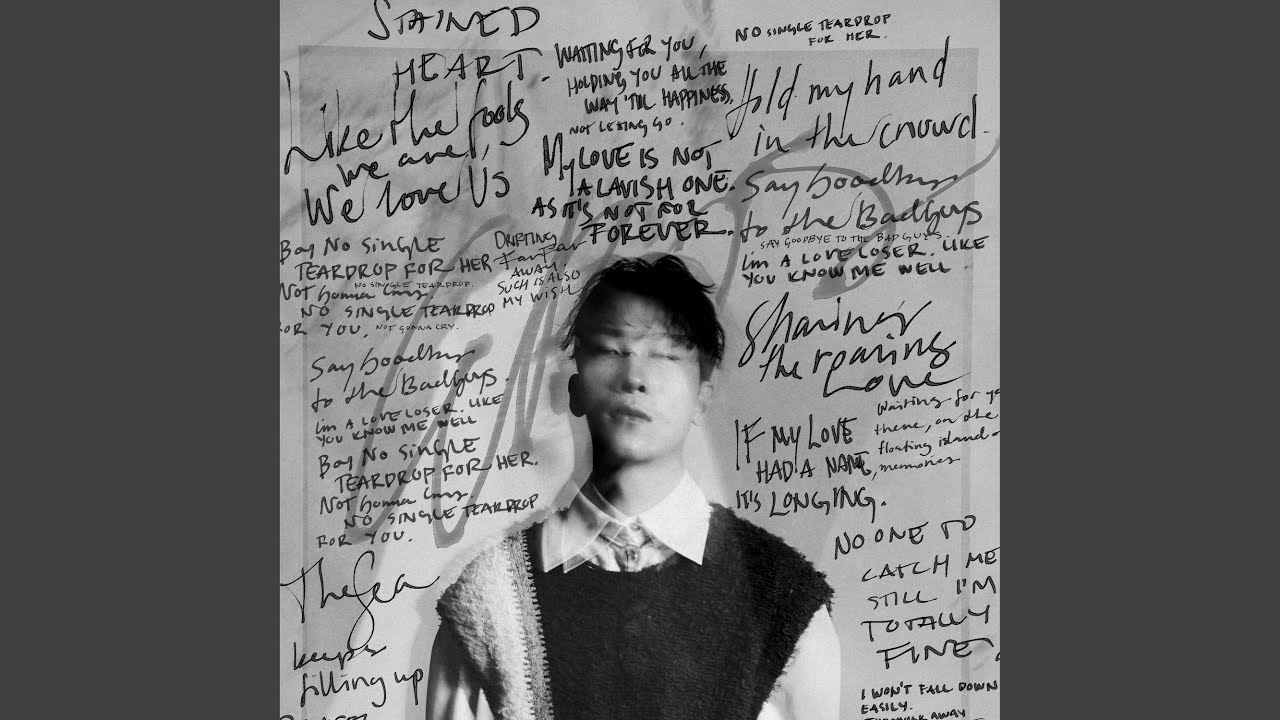 STAINED
HEART
Like the fools
we are,
We love Us
WAITING FOR YOU,
HOLDING YOU ALL THE
WAY 'TIL HAPPINESS,
NOT LETTING GO.
NO SINGLE TEARDROP
FOR HER.
Hold my hand
in the crowd.
MY LOVE IS NOT
A LAVISH ONE.
AS IT'S NOT FOR
FOREVER.
Say Goodbye
to the BadGuys
SAY GOODBYE TO THE BAD GUYS.
I'm A LOVE LOSER. LIKE
YOU KNOW ME WELL.
Boy No SINGLE
TEARDROP FOR HER
NO SINGLE TEARDROP.
Not Gonna Cry.
NO SINGLE TEARDROP
FOR YOU. NOT GONNA CRY.
DRIFTING
Far Far
AWAY.
SUCH IS ALSO
MY WISH
Sharing
the roaring
Love
Say Goodbye
to the BadGuys.
I'm A LOVE LOSER. LIKE
YOU KNOW ME WELL
Boy No SINGLE
TEARDROP FOR HER.
Not Gonna Cry.
NO SINGLE TEARDROP
FOR YOU.
IF MY LOVE
HAD A NAME,
IT'S LONGING.
Waiting for
there, on the
floating island
memories
The Sea
keeps
filling up
NO ONE TO
CATCH ME
STILL I'M
TOTALLY
FINE.
I WON'T FALL DOWN
EASILY.
AWAY